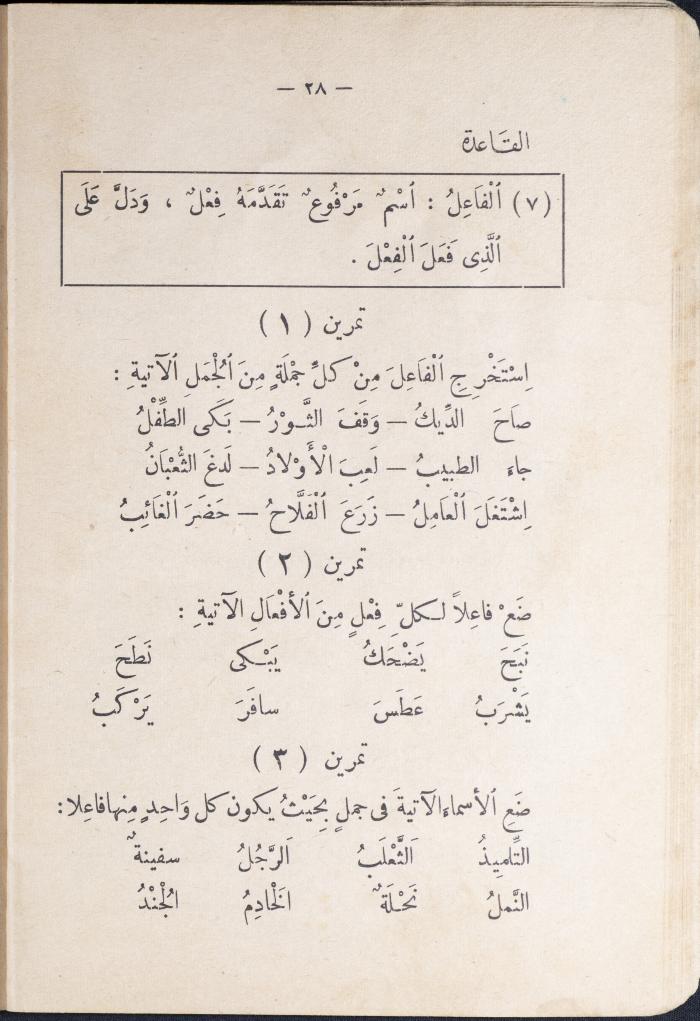 — ٢٨ —
القَاعدة
(٧) اَلْفَاعِلُ : اَسْمٌ مَرْفُوعٌ تَقَدَّمَهُ فِعْلٌ ، وَدَلَّ عَلَى
اَلَّذِى فَعَلَ اَلْفِعْلَ .
تمرين ( ١ )
اِسْتَخْرِجِ اَلْفَاعِلَ مِنْ كلِّ جمْلَةٍ مِنَ اَلْجُمَلِ اَلْآتيةِ :
صَاحَ الدِّيكُ — وَقَفَ الثَّوْرُ — بَكَى الطِّفْلُ
جاءَ الطبيبُ — لَعِبَ الْأَوْلادُ — لَدغَ الثُّعْبَانُ
اِشْتَغَلَ اَلْعَامِلُ — زَرَعَ اَلْفَلَّاحُ — حَضَرَ اَلْغَائِبُ
تمرين ( ٢ )
ضَعْ فاعِلاً لكلِّ فِعْلٍ مِنَ اَلأفْعَالِ الآتيةِ :
نَبَحَ يَضْحَكُ يَبْكى نَطَحَ
يَشْرَبُ عَطَسَ سافَرَ يَرْكَبُ
تمرين ( ٣ )
ضَعِ اَلأسماءَ الآتيةَ فى جملٍ بِحَيْثُ يكون كل وَاحِدٍ مِنها فاعِلا :
التِّلميذُ اَلثَّعْلَبُ اَلرَّجُلُ سفينةٌ
النَّملُ نَحْلَةٌ اَلْخَادِمُ اَلْجُنْدُ